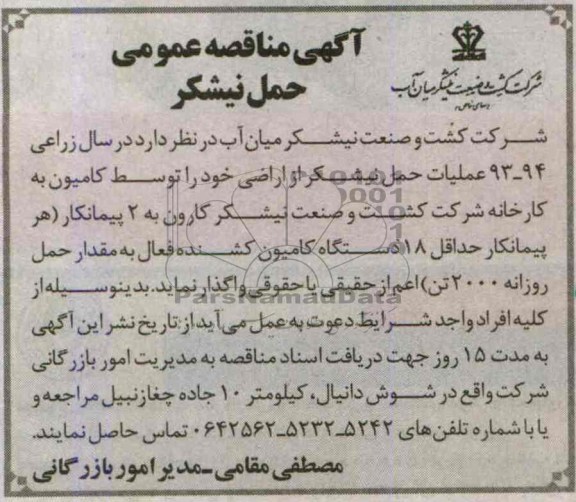 آگهی مناقصه عمومی
حمل نیشکر
شرکت کشت و صنعت نیشکر میان آب
شرکت کشت و صنعت نیشکر میان آب در نظر دارد در سال زراعی
۹۳ـ۹۴ عملیات حمل نیشکر از اراضی خود را توسط کامیون به
کارخانه شرکت کشت و صنعت نیشکر کارون به ۲ پیمانکار (هر
پیمانکار حداقل ۱۸ دستگاه کامیون کشنده فعال به مقدار حمل
روزانه ۲۰۰۰ تن) اعم از حقیقی یا حقوقی واگذار نماید. بدینوسیله از
کلیه افراد واجد شرایط دعوت به عمل می آید از تاریخ نشر این آگهی
به مدت ۱۵ روز جهت دریافت اسناد مناقصه به مدیریت امور بازرگانی
شرکت واقع در شوش دانیال، کیلومتر ۱۰ جاده چغازنبیل مراجعه و
یا با شماره تلفن های ۵۲۴۲ـ۵۲۳۲ـ۰۶۴۲۵۶۲ تماس حاصل نمایند.
مصطفی مقامی ـ مدیر امور بازرگانی
ParsNamadData